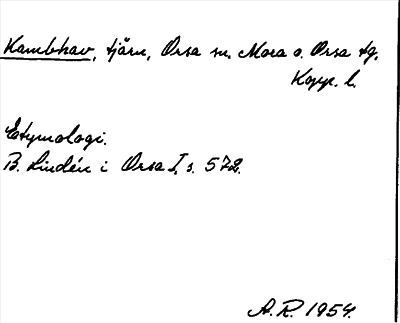 Kambhav, tjärn, Orsa sn. Mora o. Orsa tg.
Kopp. l.
Etymologi.
B. Lindén i Orsa I, s. 572.
A.R. 1954.